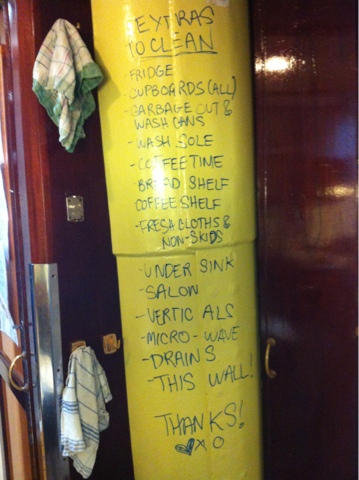 EXTRAS
TO CLEAN
- FRIDGE
- CUPBOARDS (ALL)
- GARBAGE CUT &
WASH CANS
- WASH SOLE
- COFFEETIME
BREAD SHELF
COFFEE SHELF
- FRESH CLOTHS &
NON-SKIDS
- UNDER SINK
- SALON
- VERTICALS
- MICRO-WAVE
- DRAINS
- THIS WALL!
THANKS!
♥XO